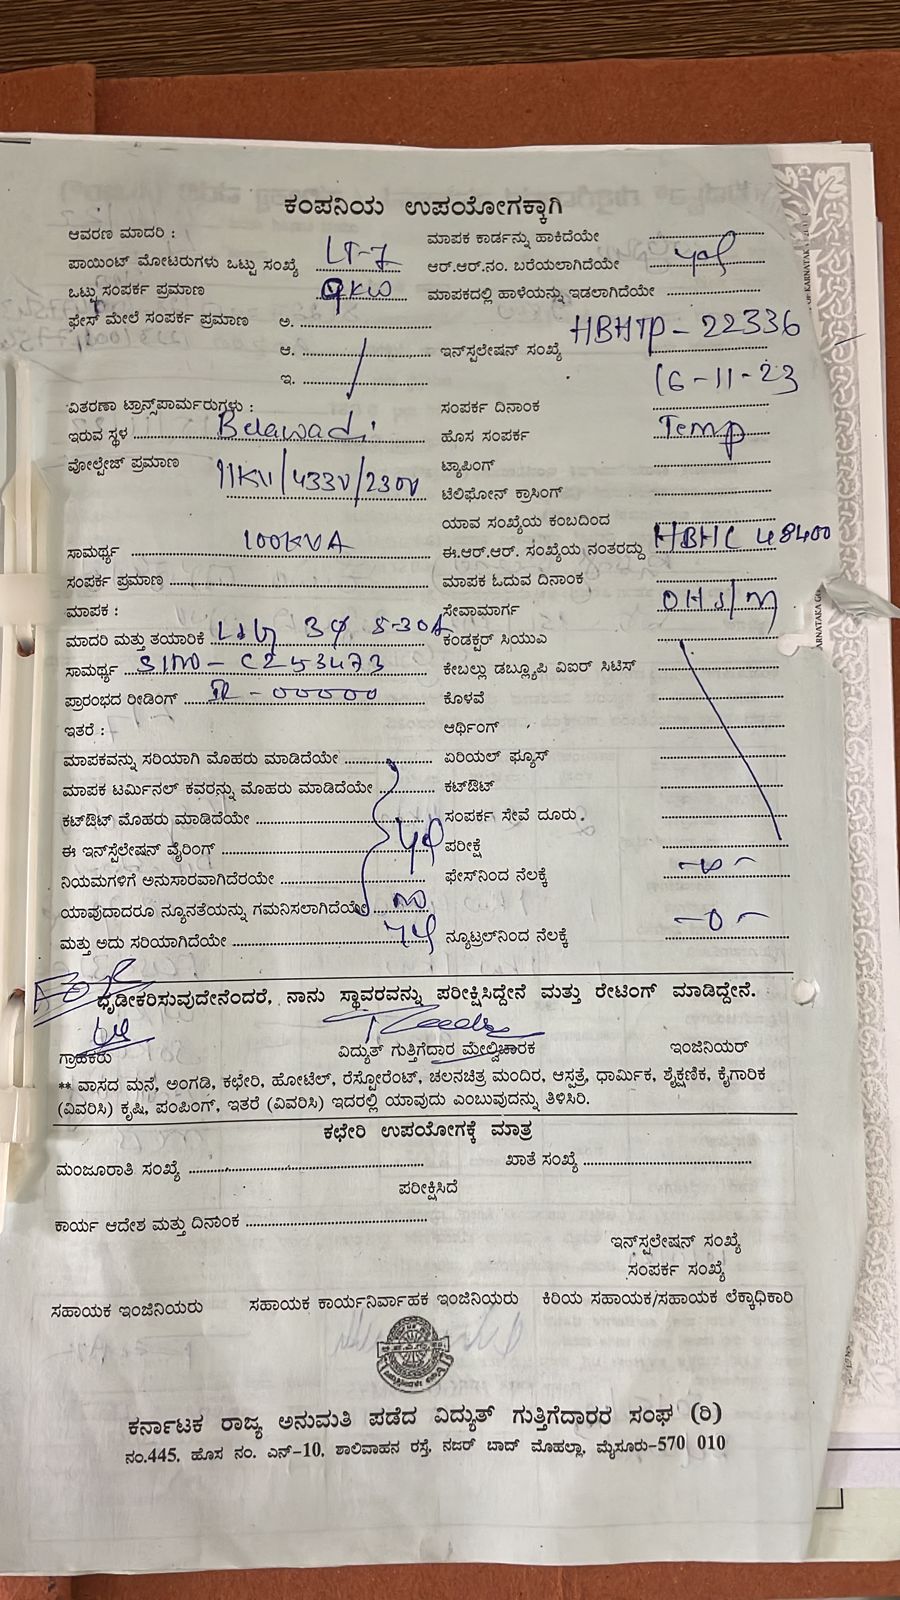 ಕಂಪನಿಯ ಉಪಯೋಗಕ್ಕಾಗಿ
ಆವರಣ ಮಾದರಿ : ಮಾಪಕ ಕಾರ್ಡನ್ನು ಹಾಕಿದೆಯೇ
ಪಾಯಿಂಟ್ ಮೋಟರುಗಳು ಒಟ್ಟು ಸಂಖ್ಯೆ LT-7 ಆರ್.ಆರ್.ನಂ. ಬರೆಯಲಾಗಿದೆಯೇ yes
ಒಟ್ಟು ಸಂಪರ್ಕ ಪ್ರಮಾಣ 9KW ಮಾಪಕದಲ್ಲಿ ಹಾಳೆಯನ್ನು ಇಡಲಾಗಿದೆಯೇ
ಫೇಸ್ ಮೇಲೆ ಸಂಪರ್ಕ ಪ್ರಮಾಣ ಅ.
ಆ. ಇನ್‌ಸ್ಪಲೇಷನ್ ಸಂಖ್ಯೆ HBHTP-22336
ಇ. 16-11-23
ವಿತರಣಾ ಟ್ರಾನ್ಸ್‌ಪಾರ್ಮರುಗಳು : ಸಂಪರ್ಕ ದಿನಾಂಕ
ಇರುವ ಸ್ಥಳ Belawadi ಹೊಸ ಸಂಪರ್ಕ Temp
ವೋಲ್ಟೇಜ್ ಪ್ರಮಾಣ 11KV/433V/230V ಟ್ಯಾಪಿಂಗ್
ಟೆಲಿಫೋನ್ ಕ್ರಾಸಿಂಗ್
ಯಾವ ಸಂಖ್ಯೆಯ ಕಂಬದಿಂದ
ಸಾಮರ್ಥ್ಯ 100KVA ಈ.ಆರ್.ಆರ್. ಸಂಖ್ಯೆಯ ನಂತರದ್ದು HBHL 48400
ಸಂಪರ್ಕ ಪ್ರಮಾಣ ಮಾಪಕ ಓದುವ ದಿನಾಂಕ
ಮಾಪಕ : ಸೇವಾಮಾರ್ಗ OH
ಮಾದರಿ ಮತ್ತು ತಯಾರಿಕೆ L&G 3φ 5-30A ಕಂಡಕ್ಟರ್ ಸಿಯುವಿ
ಸಾಮರ್ಥ್ಯ Sl No - C253473 ಕೇಬಲ್ಲು ಡಬ್ಲ್ಯೂಪಿ ವಿಐರ್ ಸಿಟಿಸ್
ಪ್ರಾರಂಭದ ರೀಡಿಂಗ್ IR - 00000 ಕೊಳವೆ
ಇತರೆ : ಆರ್ಥಿಂಗ್
ಮಾಪಕವನ್ನು ಸರಿಯಾಗಿ ಮೊಹರು ಮಾಡಿದೆಯೇ ಏರಿಯಲ್ ಫ್ಯೂಸ್
ಮಾಪಕ ಟರ್ಮಿನಲ್ ಕವರನ್ನು ಮೊಹರು ಮಾಡಿದೆಯೇ ಕಟ್‌ಔಟ್
ಕಟ್‌ಔಟ್ ಮೊಹರು ಮಾಡಿದೆಯೇ ಸಂಪರ್ಕ ಸೇವೆ ದೂರು.
ಈ ಇನ್‌ಸ್ಪೆಲೇಷನ್ ವೈರಿಂಗ್ yes ಪರೀಕ್ಷೆ
ನಿಯಮಗಳಿಗೆ ಅನುಸಾರವಾಗಿದೆರಯೇ ಫೇಸ್‌ನಿಂದ ನೆಲಕ್ಕೆ -0-
ಯಾವುದಾದರೂ ನ್ಯೂನತೆಯನ್ನು ಗಮನಿಸಲಾಗಿದೆಯೇ no
ಮತ್ತು ಅದು ಸರಿಯಾಗಿದೆಯೇ yes ನ್ಯೂಟ್ರಲ್‌ನಿಂದ ನೆಲಕ್ಕೆ -0-
ಧೃಡೀಕರಿಸುವುದೇನೆಂದರೆ, ನಾನು ಸ್ಥಾವರವನ್ನು ಪರೀಕ್ಷಿಸಿದ್ದೇನೆ ಮತ್ತು ರೇಟಿಂಗ್ ಮಾಡಿದ್ದೇನೆ.
For
ಗ್ರಾಹಕರು ವಿದ್ಯುತ್ ಗುತ್ತಿಗೆದಾರ ಮೇಲ್ವಿಚಾರಕ ಇಂಜಿನಿಯರ್
** ವಾಸದ ಮನೆ, ಅಂಗಡಿ, ಕಛೇರಿ, ಹೋಟೆಲ್, ರೆಸ್ಟೋರೆಂಟ್, ಚಲನಚಿತ್ರ ಮಂದಿರ, ಆಸ್ಪತ್ರೆ, ಧಾರ್ಮಿಕ, ಶೈಕ್ಷಣಿಕ, ಕೈಗಾರಿಕ
(ವಿವರಿಸಿ) ಕೃಷಿ, ಪಂಪಿಂಗ್, ಇತರೆ (ವಿವರಿಸಿ) ಇದರಲ್ಲಿ ಯಾವುದು ಎಂಬುವುದನ್ನು ತಿಳಿಸಿರಿ.
ಕಛೇರಿ ಉಪಯೋಗಕ್ಕೆ ಮಾತ್ರ
ಮಂಜೂರಾತಿ ಸಂಖ್ಯೆ ಖಾತೆ ಸಂಖ್ಯೆ
ಪರೀಕ್ಷಿಸಿದೆ
ಕಾರ್ಯ ಆದೇಶ ಮತ್ತು ದಿನಾಂಕ
ಇನ್‌ಸ್ಪಲೇಷನ್ ಸಂಖ್ಯೆ
ಸಂಪರ್ಕ ಸಂಖ್ಯೆ
ಸಹಾಯಕ ಇಂಜಿನಿಯರು ಸಹಾಯಕ ಕಾರ್ಯನಿರ್ವಾಹಕ ಇಂಜಿನಿಯರು ಕಿರಿಯ ಸಹಾಯಕ/ಸಹಾಯಕ ಲೆಕ್ಕಾಧಿಕಾರಿ
ಕರ್ನಾಟಕ ರಾಜ್ಯ ಅನುಮತಿ ಪಡೆದ ವಿದ್ಯುತ್ ಗುತ್ತಿಗೆದಾರರ ಸಂಘ (ರಿ)
ನಂ.445, ಹೊಸ ನಂ. ಎನ್-10, ಶಾಲಿವಾಹನ ರಸ್ತೆ, ನಜರ್ ಬಾದ್ ಮೊಹಲ್ಲಾ, ಮೈಸೂರು-570 010